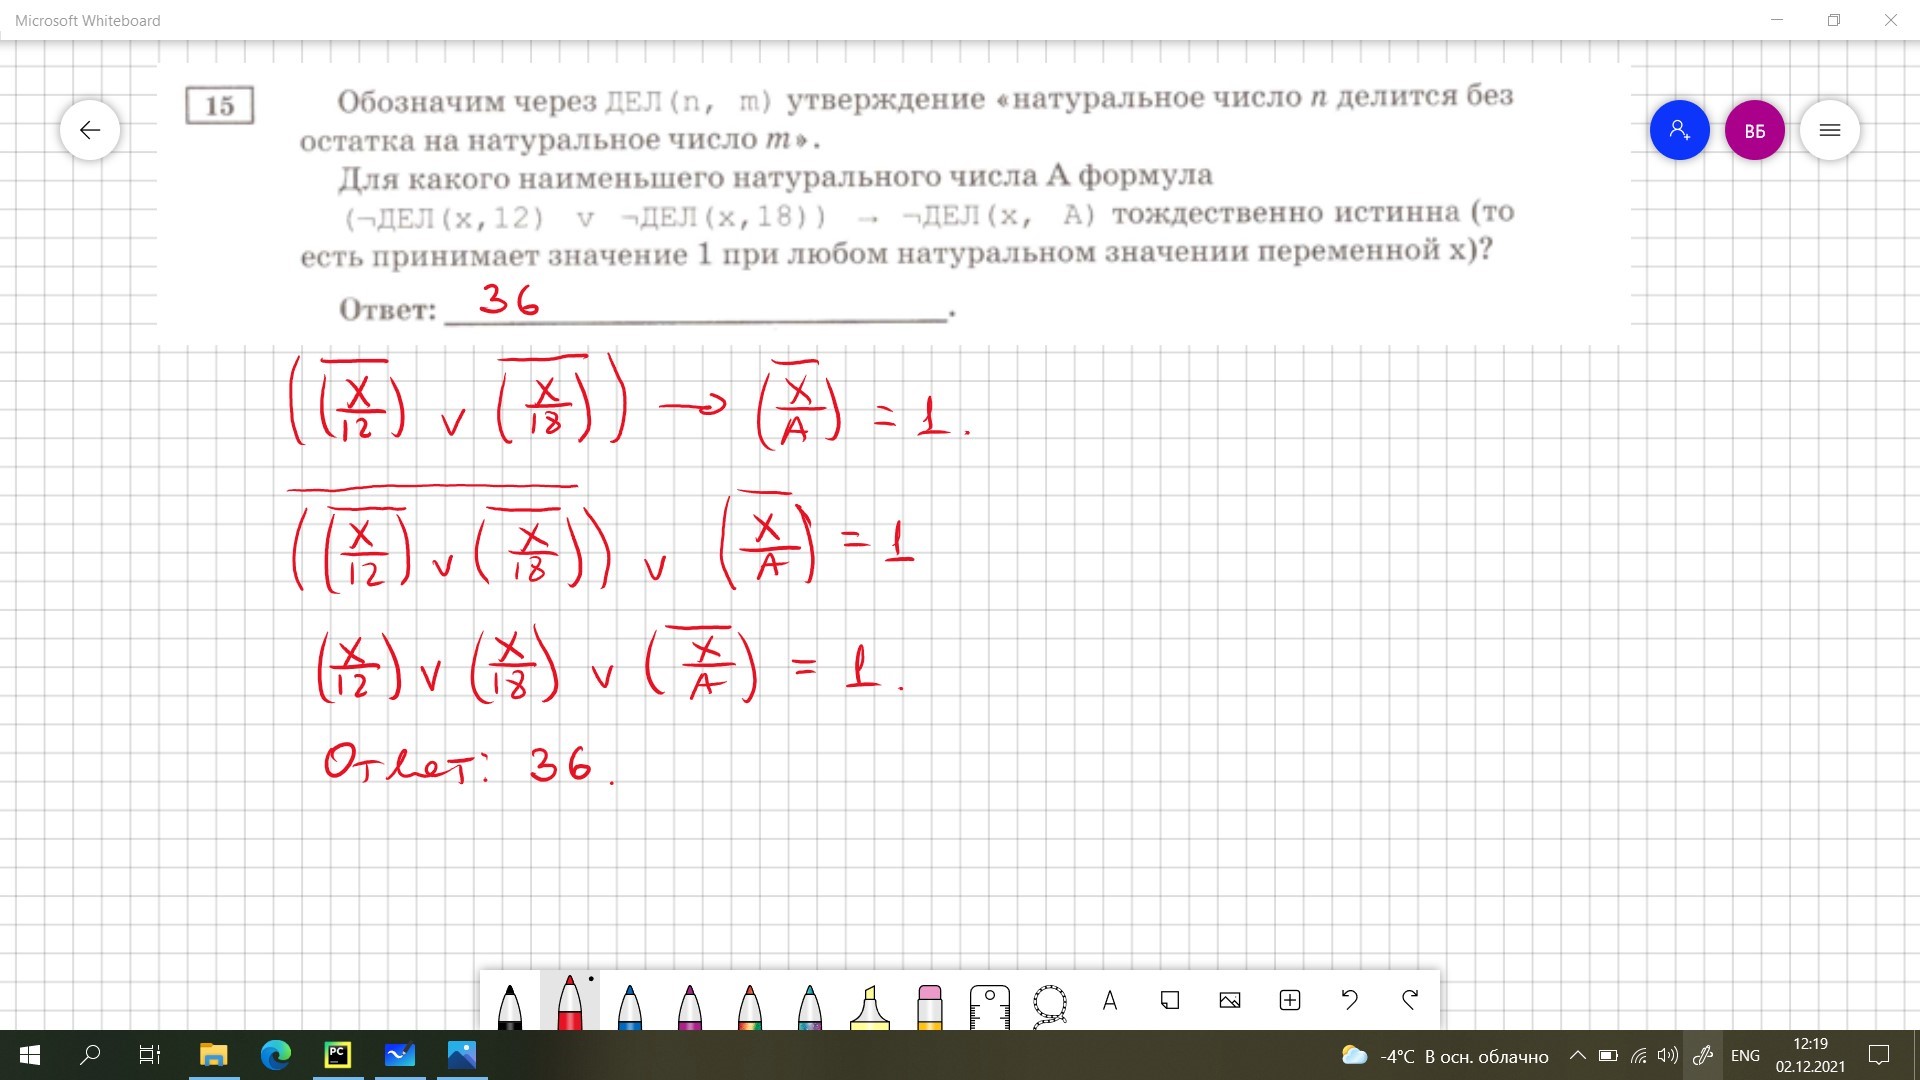 Microsoft Whiteboard
15
Обозначим через ДЕЛ(n, m) утверждение «натуральное число n делится без
остатка на натуральное число m».
Для какого наименьшего натурального числа А формула
(¬ДЕЛ(x,12) v ¬ДЕЛ(x,18)) → ¬ДЕЛ(x, A) тождественно истинна (то
есть принимает значение 1 при любом натуральном значении переменной x)?
Ответ: 36.
ВБ
((X̅/12) v (X̅/18)) → (X̅/A) = 1.
((X/12)̅ v (X/18)̅)̅ v (X/A)̅ = 1
(X/12) v (X/18) v (X/A)̅ = 1.
Ответ: 36.
A
PC
-4°C В осн. облачно
ENG
12:19
02.12.2021